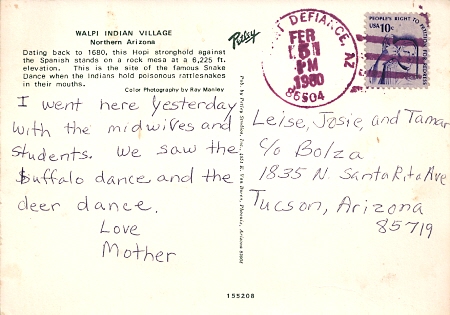 WALPI INDIAN VILLAGE
Northern Arizona
Dating back to 1680, this Hopi stronghold against
the Spanish stands on a rock mesa at a 6,225 ft.
elevation. This is the site of the famous Snake
Dance when the Indians hold poisonous rattlesnakes
in their mouths.
Color Photography by Ray Manley
Petley
I went here yesterday
with the midwives and
students. We saw the
Buffalo dance and the
deer dance.
Love
Mother
Pub. by Petley Studios, Inc., Van Buren, Phoenix, Arizona
DEFIANCE, AZ
FEB
PM
1980
86504
PEOPLE'S RIGHT TO
USA 10c
Leise, Josie, and Tamar
c/o Bolza
1835 N. Santa Rita Ave
Tucson, Arizona
85719
155208